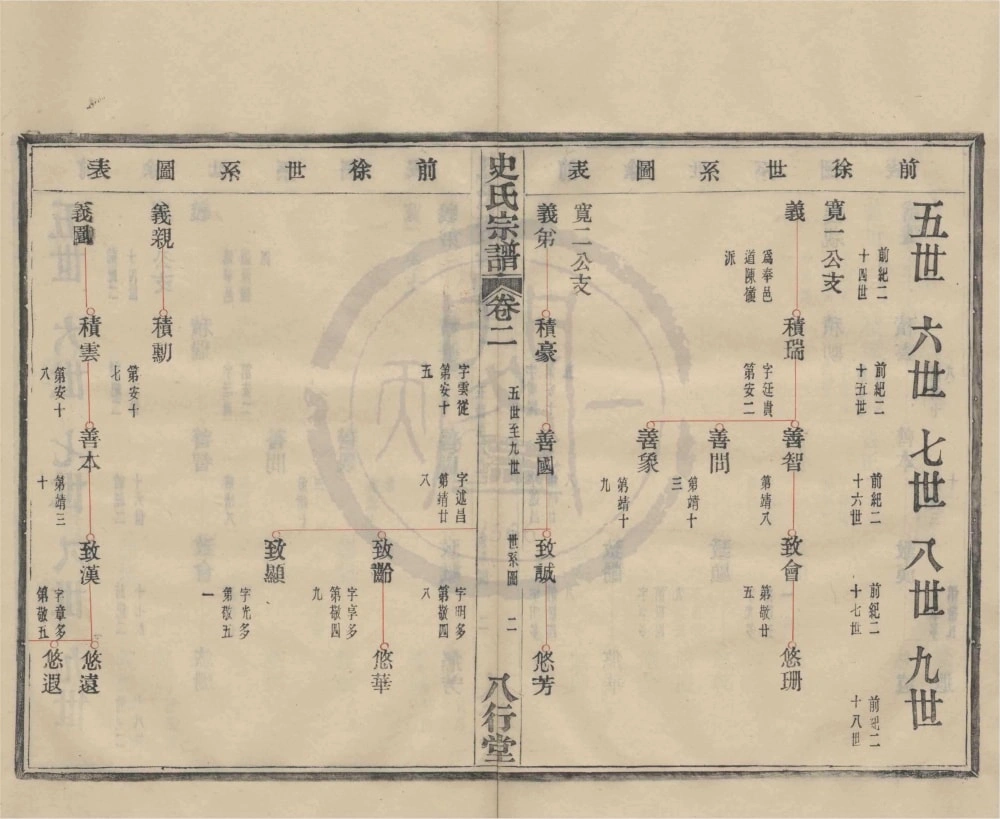 前徐世系圖表
五世 六世 七世 八世 九世
前紀二
十四世
前紀二
十五世
前紀二
十六世
前紀二
十七世
前紀二
十八世
寬一公支
義
爲奉邑
道陳嶺
派
積瑞
字廷貴
第安二
善智
第靖八
致會
第敬廿
五
悠珊
善問
第靖十
三
善象
第靖十
九
寬二公支
義弟
積豪
字雲從
第安十
五
善國
字述昌
第靖廿
八
致誠
字明多
第敬四
八
悠芳
史氏宗譜 卷二
五世至九世
世系圖
二
八行堂
前徐世系圖表
致齡
字亨多
第敬四
九
悠華
致顯
字光多
第敬五
一
義親
積勳
第安十
七
義圖
積雲
第安十
八
善本
第靖三
十
致漢
字章多
第敬五
悠遠
悠遐